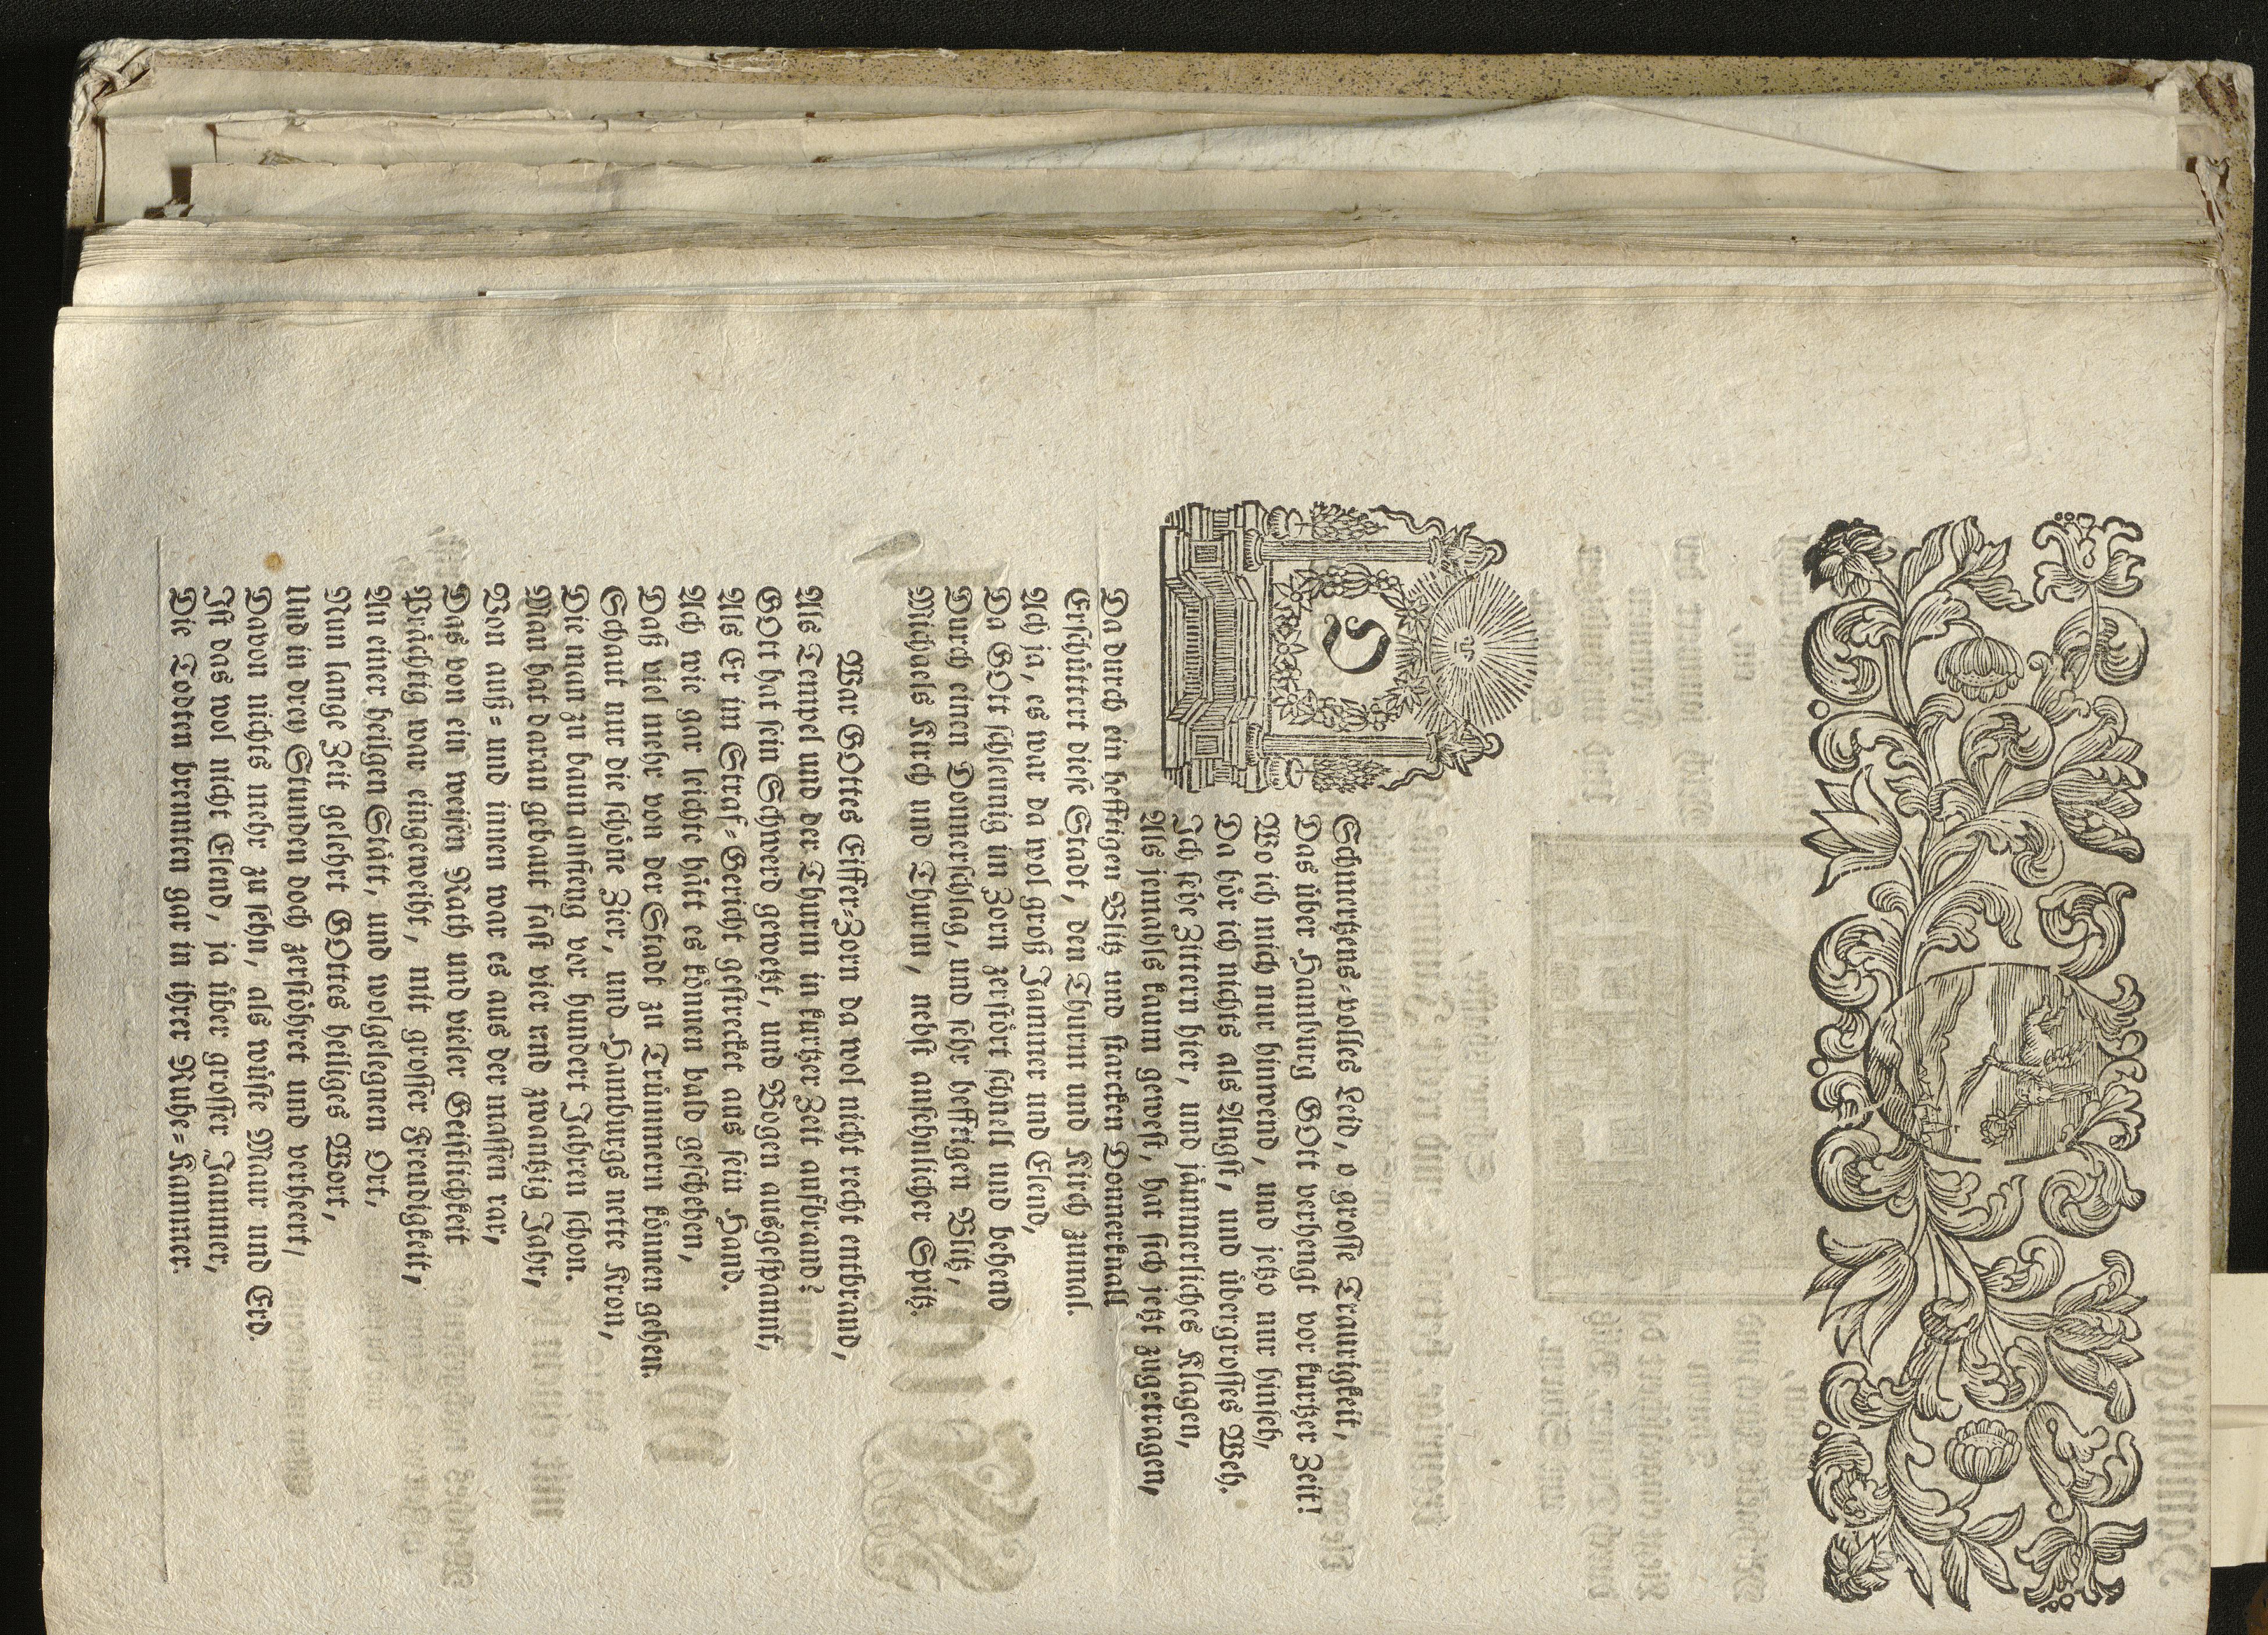 O Schmertzens-volles Leid, o grosse Traurigkeit,
Das über Hamburg GOtt verhengt vor kurtzer Zeit!
Wo ich mich nur hinwend, und jetzo nur hinseh,
Da hör ich nichts als Angst, und übergrosses Weh.
Ich sehe Zittern hier, und jämmerliches Klagen,
Als jemahls kaum gewest, hat sich jetzt zugetragen,
Da durch ein hefftigen Blitz und starcken Donnerknall
Erschüttert diese Stadt, den Thurm und Kirch zumal.
Ach ja, es war da wol groß Jammer und Elend,
Da GOtt schleunig in Zorn zerstört schnell und behend
Durch einen Donnerschlag, und sehr hefftigen Blitz,
Michaels Kirch und Thurm, nebst ansehnlicher Spitz.
War GOttes Eiffer-Zorn da wol nicht recht entbrand,
Als Tempel und der Thurm in kurtzer Zeit aufbrand?
GOtt hat sein Schwerd gewetzt, und Bogen ausgespannt,
Als Er im Straf-Gericht gestrecket aus sein Hand.
Ach wie gar leichte hätt es können bald geschehen,
Daß viel mehr von der Stadt zu Trümmern können gehen.
Schaut nur die schöne Zier, und Hamburgs nette Kron,
Die man zu baun anfieng vor hundert Jahren schon.
Man hat daran gebaut fast vier und zwantzig Jahr,
Von auß- und innen war es aus der massen rar,
Das von ein weisen Rath und vieler Geistlichkeit
Prächtig war eingeweiht, mit grosser Freudigkeit,
An einer heilgen Stätt, und wolgelegnen Ort,
Nun lange Zeit gelehrt GOttes heiliges Wort,
Und in drey Stunden doch zerstöhret und verheert,
Davon nichts mehr zu sehn, als wüste Maur und Erd.
Ist das wol nicht Elend, ja über grosser Jammer,
Die Todten brennten gar in ihrer Ruhe-Kammer.